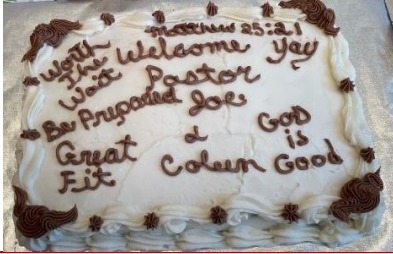 Matthew 25:21
Worth
The
Wait
Welcome
yay
Pastor
Joe
&
Coleen
Be Prepared
Great
Fit
God
is
Good